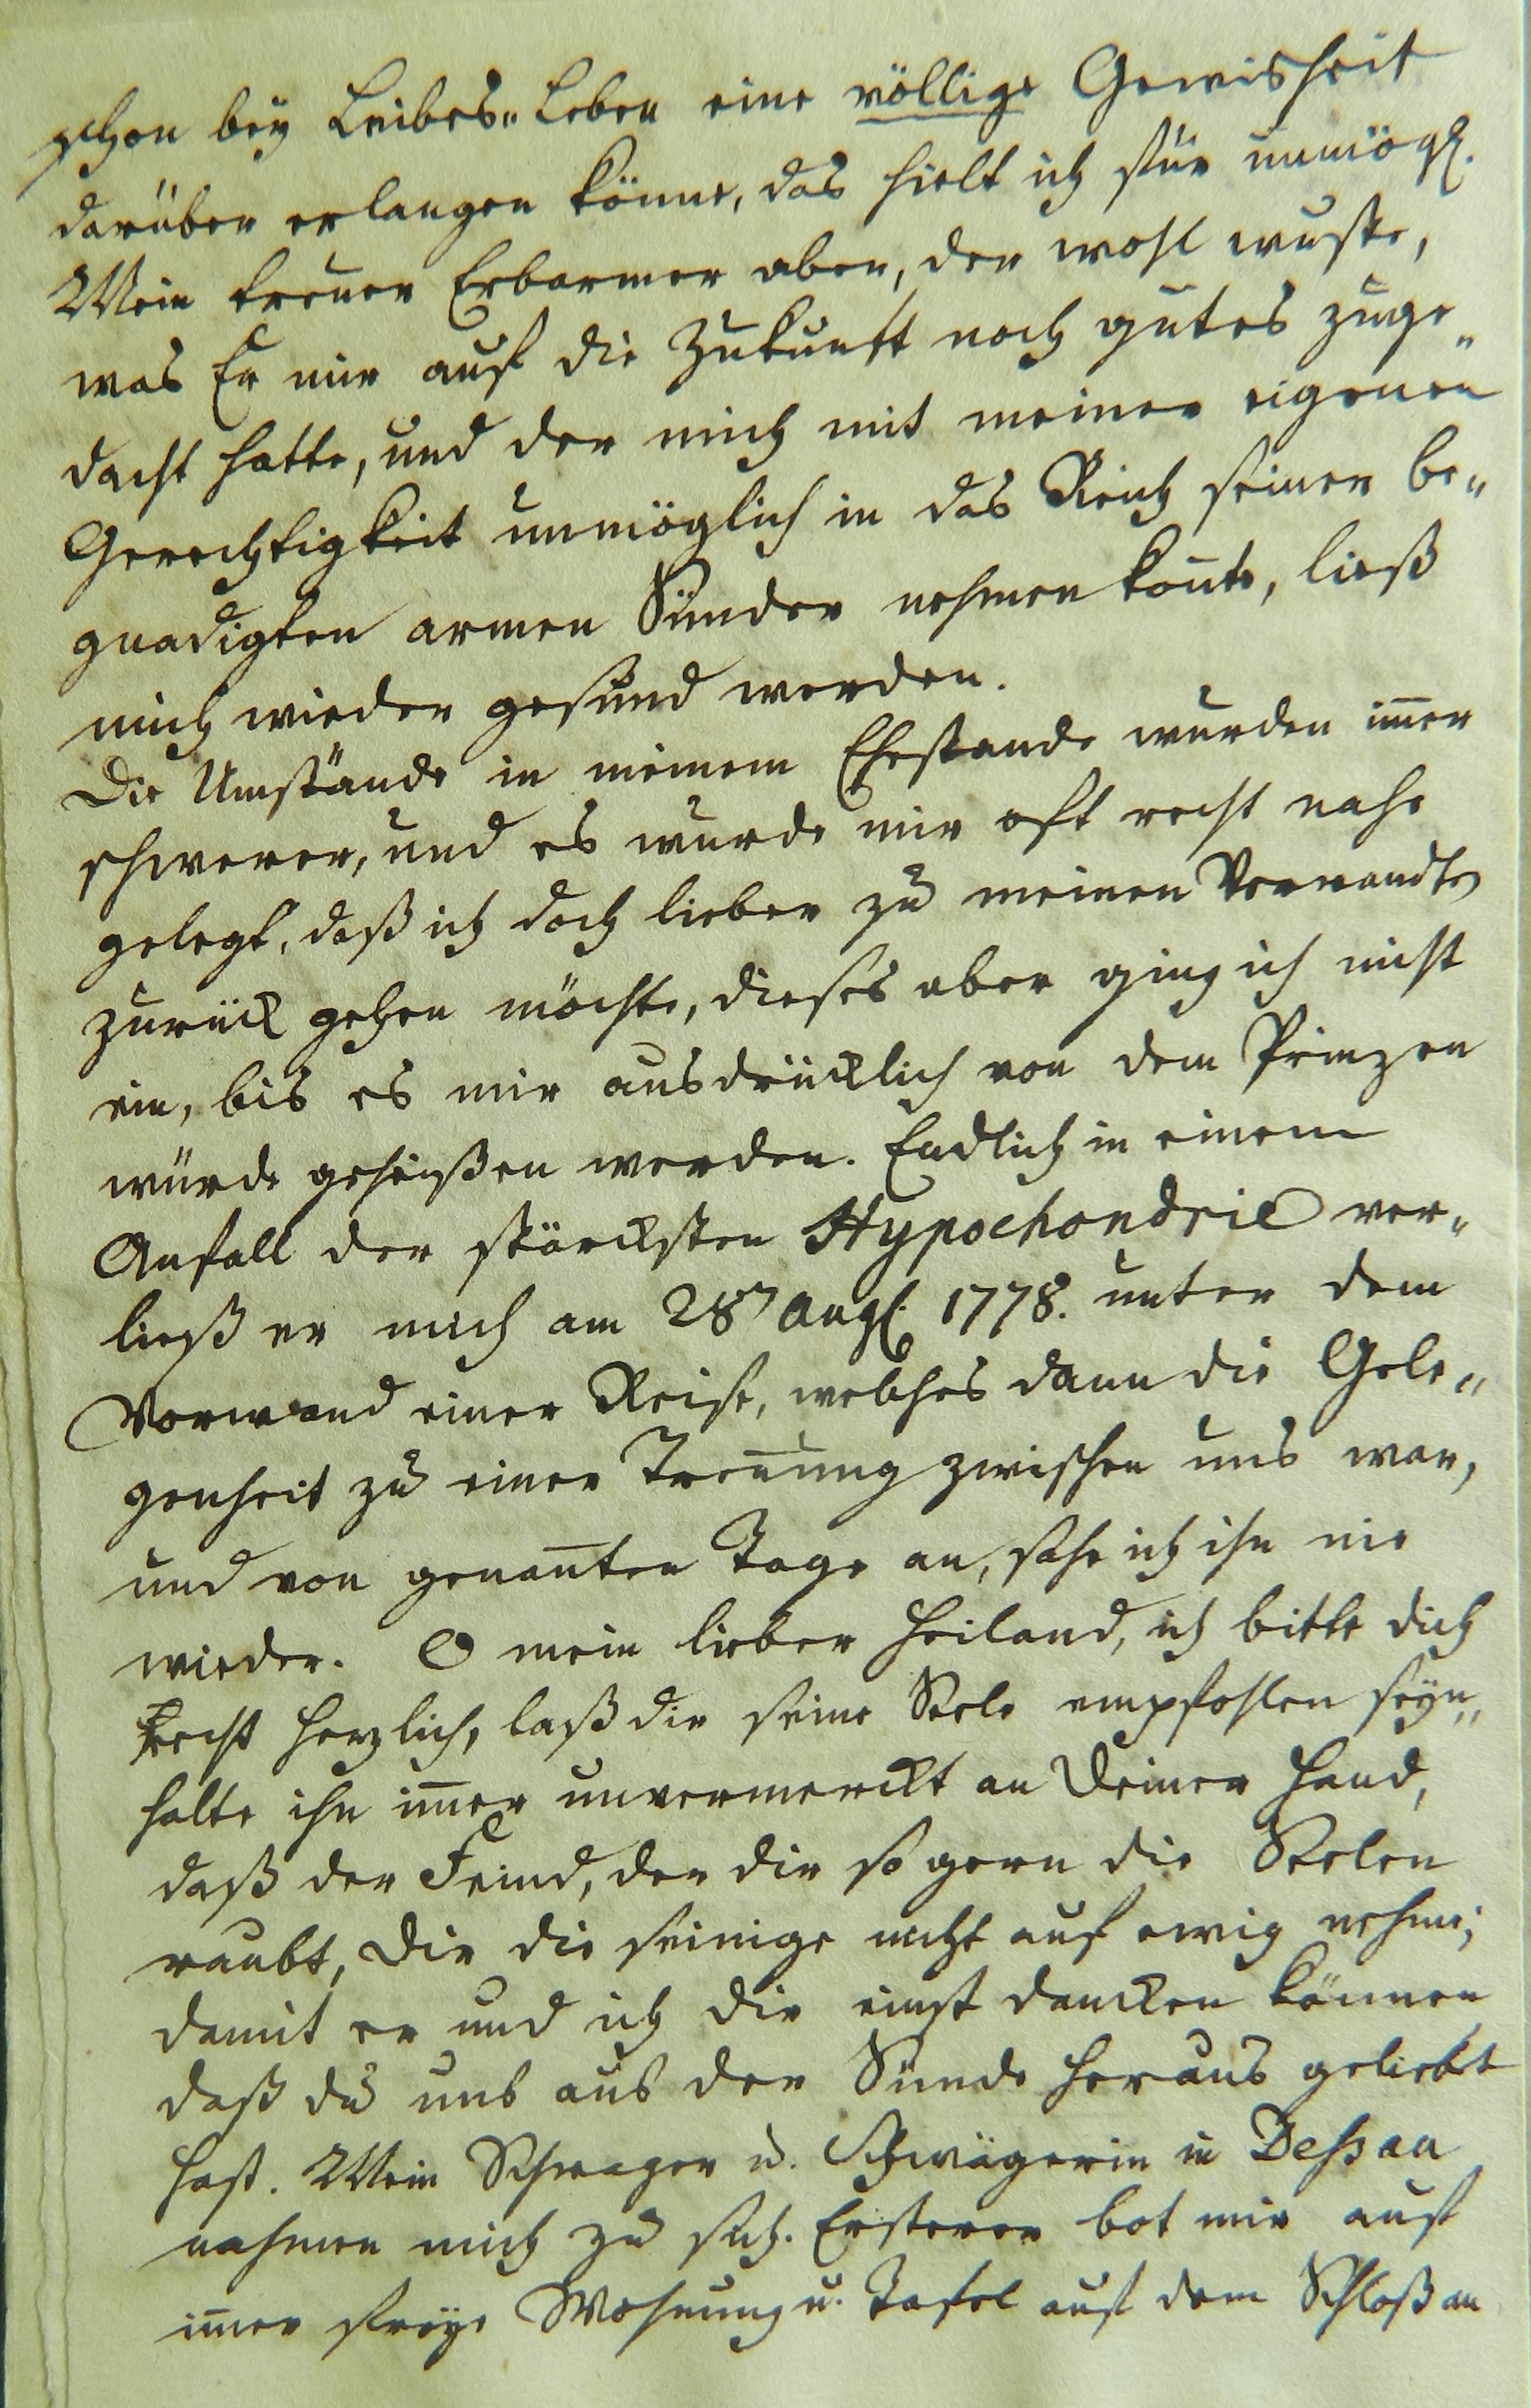 schon bey Leibes-Leben eine völlige Gewisheit
darüber erlangen könne, das hielt ich für unmögl.
Mein treuer Erbarmer aber, der wohl wuste,
was Er mir auf die Zukunft noch gutes zuge-
dacht hatte, und der mich mit meiner eigenen
Gerechtigkeit unmöglich in das Reich seiner be-
gnadigten armen Sünder nehmen kon̄te, ließ
mich wieder gesund werden.
Die Umstände in meinem Ehestande wurden im̄er
schwerer, und es wurde mir oft recht nahe
gelegt, daß ich doch lieber zu meinen Verwandten
zurück gehen möchte, dieses aber ging ich nicht
ein, bis es mir ausdrücklich von dem Prinzen
würde geheißen werden. Endlich in einem
Anfall der stärcksten Hypochondrie ver-
ließ er mich am 28n Augl. 1778. unter dem
Vorwand einer Reise, welches dann die Gele-
genheit zu einer Tren̄ung zwischen uns war,
und von genan̄ten Tage an, sahe ich ihn nie
wieder. O mein lieber Heiland, ich bitte dich
recht herzlich, laß dir seine Seele empfohlen seyn,
halte ihn im̄er unvermerckt an Deiner Hand,
daß der Feind, der dir so gern die Seelen
raubt, Dir die seinige nicht auf ewig nehme;
damit er und ich dir einst dancken können
daß du uns aus der Sünde heraus geliebt
hast. Mein Schwager u. Schwägerin in Dessau
nahmen mich zu sich. Ersterer bot mir auf
im̄er freye Wohnung u. Tafel auf dem Schloß an